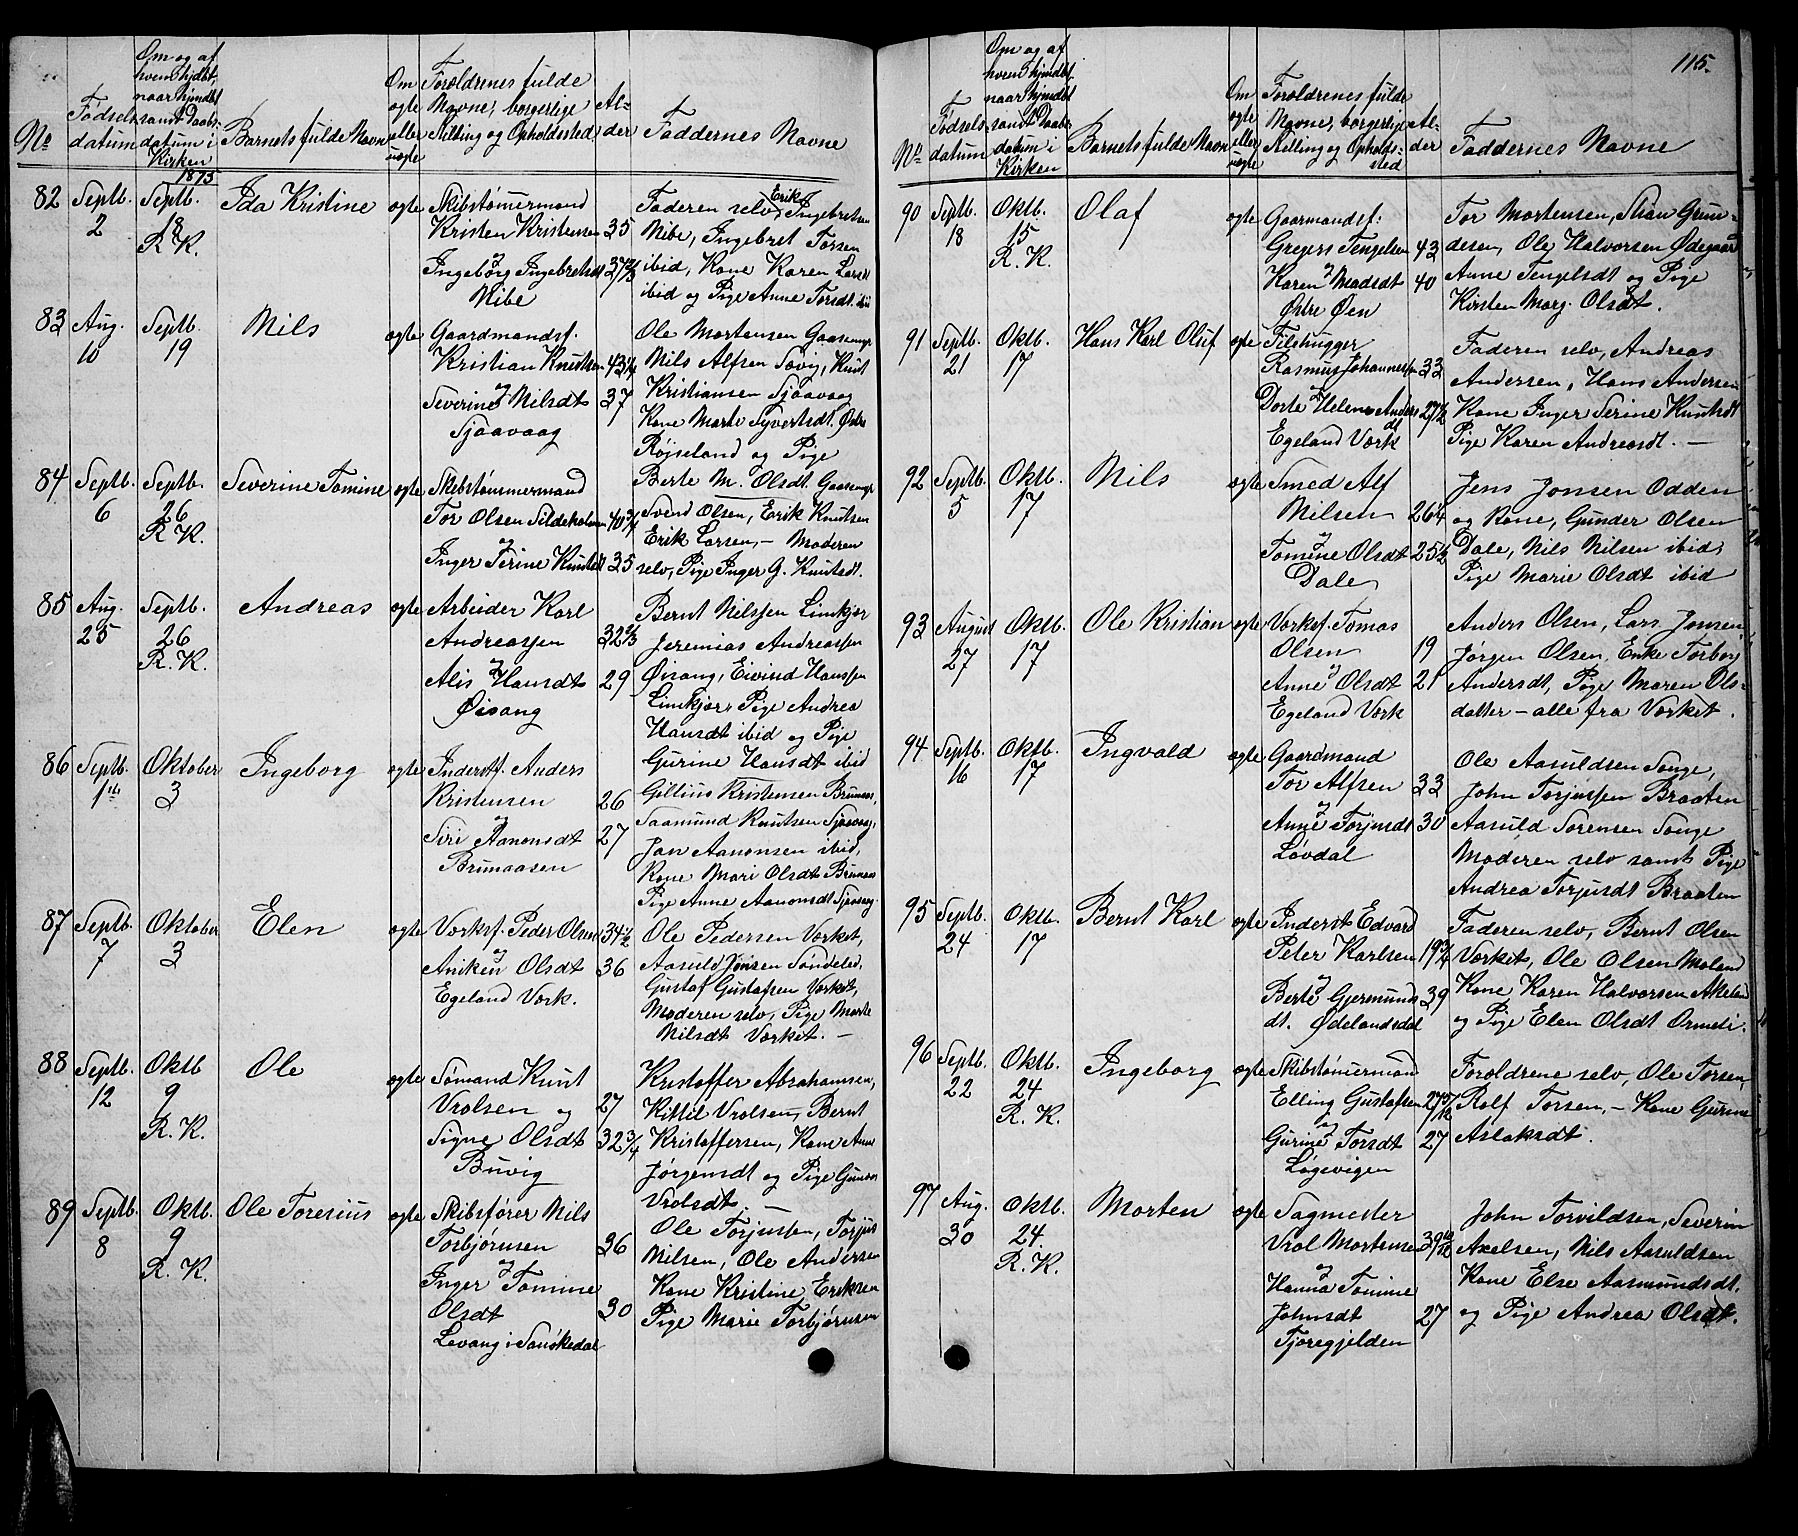 No
Fødsels
datum
Om og af
hvem hjdbt,
naar hjmdbt
samt Daabs-
datum i
Kirken
1875
Barnets fulde Navn
Om
ægte
eller
uægte
Forældrenes fulde
Navne, borgerlige
Stilling og Opholdssted.
Al-
der
Faddernes Navne
82 Septb. 2
Septb. 18
R. K.
Ida Kristine
ægte
Skibstømermand
Kristen Kristensen 35
og
Ingeborg Ingebretsdt
Nibe
Faderen selv, Erik Ingebretsen
Nibe, Ingebret Torsen
ibid, Kone Karen Larsdt
ibid og Pige Anne Torsdt. ibid
83 Aug. 10
Septb. 19
Nils
ægte
Gaardmandsf.
Kristian Knutsen 43 1/4
og
Severine Nilsdt 37
Sjaavaag
Ole Mortensen Gaaseng
Nils Alfsen Sævig, Knut
Kristiansen Sjaavaag
Kone Marte Syvertsdt. Østre
Røjseland og Pige
Berte M. Olsdt. Gaaseng
84 Septb. 6
Septb. 26
R. K.
Severine Tomine
ægte
Skibstømmermand
Tor Olsen Sildeholmen 40 3/4
og
Inger Serine Knutsdt 35
Svend Olsen, Erik Knutsen
Erik Larsen, – Moderen
selv, Pige Inger G. Knutsdt.
85 Aug. 25
Septb. 26
R. K.
Andreas
ægte
Arbeider Karl
Andreassen 32 2/3
og
Alis Hansdt 29
Øisang
Bernt Nilssen Limkjær
Jeremias Andreassen
Øisang, Eivind Hanssen
Limkjær, Pige Andrea
Hansdt ibid og Pige
Gurine Hansdt ibid
86 Septb. 1ste
Oktober 3
Ingeborg
ægte
Inderstf. Anders
Kristensen 26
og
Siri Aanonsdt 27
Brunaasen
Gillius Kristensen Brunaas,
Saamund Knutsen Sjaavaag,
Jan Aanonsen ibid,
Kone Mari Olsdt Brunaas
Pige Anne Aanonsdt Sjaavaag
87 Septb. 7
Oktober 3
Elen
ægte
Værksf. Peder Olsen 34 1/2
og
Aniken Olsdt 36
Egeland Værk.
Ole Pedersen Værket,
Aasuld Jensen Søndeled,
Gustaf Gustafsen Værket,
Moderen selv, Pige Marte
Nilsdt Værket. –
88 Septb. 12
Oktb 9
R. K.
Ole
ægte
Sømand Knut
Vrolsen og 27
Signe Olsdt 32 3/4
Buvig
Kristoffer Abrahamsen,
Kittil Vrolsen, Bernt
Kristoffersen, Kone Anne
Jørgensdt og Pige Gunver
Vrolsdt –
89 Septb. 8
Oktb. 9
R. K.
Ole Toresius
ægte
Skibsfører Nils
Torbjørnsen 36
og
Inger Tomine
Olsdt 30
Levang i Sanøkedal
Ole Torjussen, Torjus
Nilsen, Ole Andersen
Kone Kristine Eriksen
Pige Marie Torbjørnsen
115.
No
Fødsels
datum
Om og af
hvem hjmdbt.
naar hjmdbt
samt Daabs-
datum i
Kirken
Barnets fulde Navn
Om
ægte
eller
uægte
Forældrenes fulde
Navne, borgerlige
Stilling og Opholds-
sted
Al-
der
Faddernes Navne
90 Septb. 18
Oktb. 15
R. K.
Olaf
ægte
Gaarmandsf.
Gregers Tengelsen 43
og
Karen Madsdt 40
Østre Øen
Tor Mortensen, Stian Gun-
desen, Ole Halvorsen Ødegaard
Anne Tengelsdt og Pige
Kirsten Marg. Olsdt.
91 Septb. 21
Oktb. 17
Hans Karl Oluf
ægte
Filehugger
Rasmus Johannesen 33
og
Dorte Helene Anders 27 1/2
dt
Egeland Værk
Faderen selv, Andreas
Andersen, Hans Andersen
Kone Inger Serine Knutsdt
Pige Karen Andreasdt. –
92 Septb. 5
Oktb. 17
Nils
ægte
Smed Alf
Nilsen 26 1/4
og
Tomine Olsdt 25 1/2
Dale
Jens Jonsen Odden
og Kone, Gunder Olsen
Dale, Nils Nilsen ibid,
Pige Marie Olsdt ibid
93 August 27
Oktb. 17
Ole Kristian
ægte
Værksf. Tomas
Olsen 19
og
Anne Olsdt 21
Egeland Værk
Anders Olsen, Lars Jonsen,
Jørgen Olsen, Enke Torborg
Andersdt, Pige Maren Ols-
datter – alle fra Værket.
94 Septb. 16
Oktb. 17
Ingvald
ægte
Gaardmand
Tor Alfsen 33
og
Anne Torjusdt 30
Løvdal
Ole Aasuldsen Songe,
John Torjussen Braaten
Aasuld Sørensen Songe
Moderen selv samt Pige
Andrea Torjusdt Braaten
95 Septb. 24
Oktb. 17
Bernt Karl
ægte
Inderst Edvard
Peter Karlsen 19 3/4
og
Berte Gjermunds 39
dt. Ødelandsdal
Faderen selv, Bernt Olsen
Værket, Ole Olsen Moland
Kone Karen Halvorsen Akeland
og Pige Elen Olsdt Ormeli.
96 Septb. 22
Oktb. 24
R. K.
Ingeborg
ægte
Skibstømermand
Elling Gustafsen 27 5/12
og
Gurine Torsdt 27
Løgevigen
Forældrene selv, Ole Torsen,
Rolf Torsen, – Kone Gurine
Aslaksdt.
97 Aug. 30
Oktb. 24.
R. K.
Morten
ægte
Sagmester
Vrol Mortensen 39 10/12
og
Hanna Tomine
Johnsdt 27
Fjoregjelden
John Torvildsen, Severin
Axelsen, Nils Aasuldsen
Kone Else Aasmundsdt.
og Pige Andrea Olsdt.